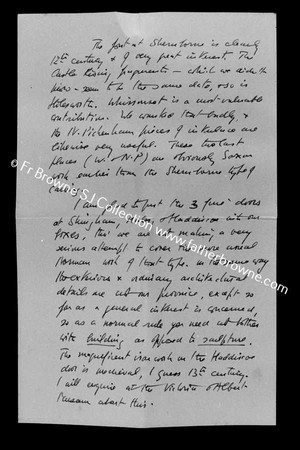 The font at Shernborne is clearly
12th century & of very great interest. The
Castle Rising fragments – which we didn't
know – seem to be the same date, & so is
Whissonsett is a most valuable
contribution. We wanted that badly, &
the N. Pickenham pieces of interlace are
likewise very useful. These two last
places (W. & N-P) are obviously Saxon
work earlier than the Shernborne type of
carving.
I am glad to put the 3 fine doors
at & Haddiscoe into our
tho' we are not making a very
serious attempt to cover the more usual
Norman work of that type. In the same way
the exteriors & ordinary architectural
details are not our province, except so
far as a general interest is concerned,
so as a normal rule you need not bother
with building as opposed to sculpture.
The magnificent iron work on the Haddiscoe
door is medieval, I guess 13th century.
I will enquire at the Victoria & Albert
Museum about this.
© Fr Browne S.J. Collection
www.fatherbrowne.com